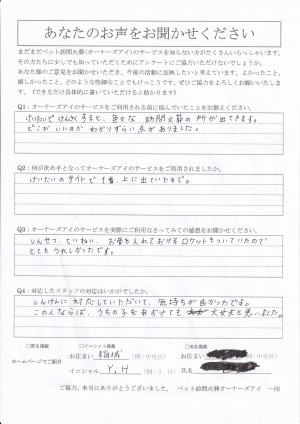 あなたのお声をお聞かせください
まだまだペット訪問火葬(オーナーズアイ)のサービスを知らない方がたくさんいらっしゃいます。
その方たちに少しでも知っていただくためにアンケートにご協力いただけないでしょうか。
あなた様のご意見をお聞かせいただき、今後の活動に反映したいと考えています。よかったこと、
嬉しかったこと、どのような些細なことでもけっこうです。ぜひご協力をよろしくお願いいたしま
す。(できるだけ具体的に書いていただけると助かります)
Q1:オーナーズアイのサービスをご利用される前に悩んでいたことをお教えください。
けいたいでけんさくすると、色々な 訪問火葬の所が出てきます。
どこがいいのか わかりずらい点がありました。
Q2:何が決め手となってオーナーズアイのサービスをご利用されましたか。
けいたいのサイトで1番、上に出ていたので。
Q3:オーナーズアイのサービスを実際にご利用なさってみての感想をお聞かせください。
しんせつ、ていねい、お骨を入れておけるロケットもついていたので
とてもうれしかったです。
Q4:対応したスタッフの対応はいかがでしたか。
しんけんに対応していただいて、気持ちが良かったです。
このんならば、うちの子をあずけても 大丈夫と思いました。
□匿名掲載 □イニシャル掲載 □実名掲載
ホームページでご紹介
お住まい 稲城 (例:中央区)
お住まい (例:中央区)
イニシャル Y,H (例:J.H)
氏名 様
ご協力、本当にありがとうございました。 ペット訪問火葬オーナーズアイ 一同